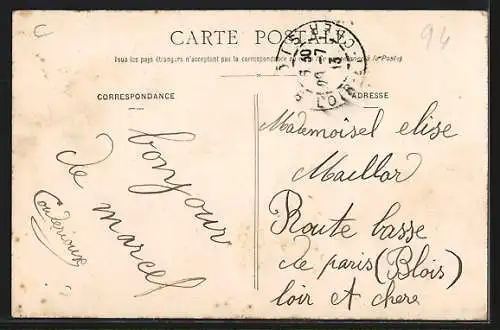 C
94
CARTE POSTALE
Tous les pays étrangers n'acceptent pas la correspondance
à la Poste
CORRESPONDANCE
ADRESSE
bonjour
de marcel
Mademoisel elise
Maillar
Route basse
de paris (Blois)
loir et chere